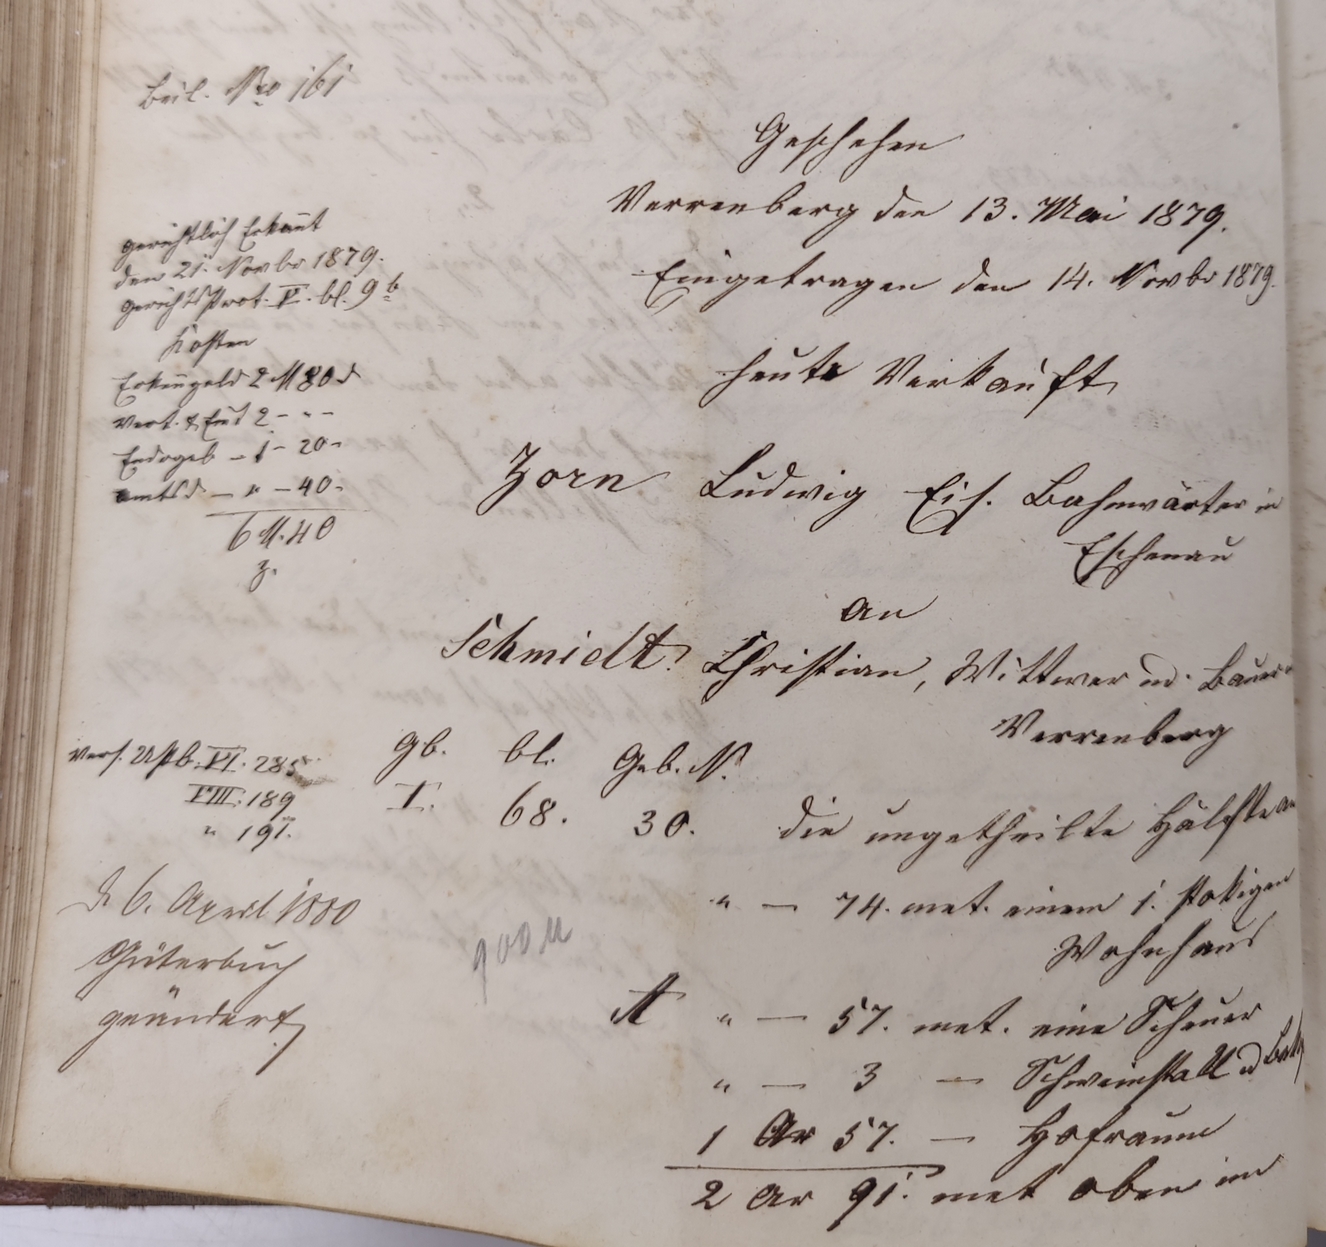 Beil. Nro 161
Geschehen
Verrenberg den 13. Mai 1879.
Eingetragen den 14. Novbr 1879.
gerichtlich Erkañt
den 21. Novbr 1879.
gerichtsProt. V. bl. 9 b
Kosten
Erkeñgeld 2 M 80 d
2 - " -
- 1 - 20 -
amtsd - " - 40 -
6 M. 40
z.
heute Verkauft
Zorn Ludwig Eis. Bahnwärter in
Eschenau
an
Schmidt. Christian, Wittwer ud. Bauer
Verrenberg
Gb. bl. Geb. N.
I. 68. 30. die ungetheilte Hälfte an
vers. Upb. VI. 285
VIII. 189
" 191.
" — 74. met. einem 1. stokigen
Wohnhaus
D. 6. April 1880
Güterbuch
geändert
900 M
A " — 57. met. eine Scheuer
" — 3 — Schweinstall ud
1 Ar 57. — Hofraum
2 Ar 91. met oben im